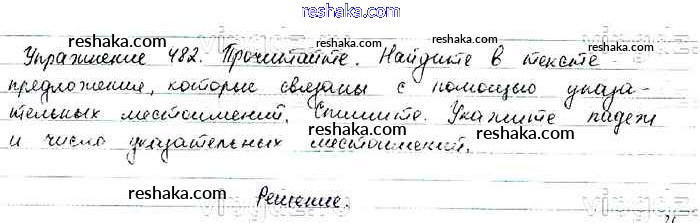 reshaka.com
reshaka.com reshaka.com
Упражнение 482. Прочитайте. Найдите в тексте
предложения, которые связаны с помощью указа-
тельных местоимений. Спишите. Укажите падеж
reshaka.com reshaka.com
и число указательных местоимений.
reshaka.com Решение. reshaka.com